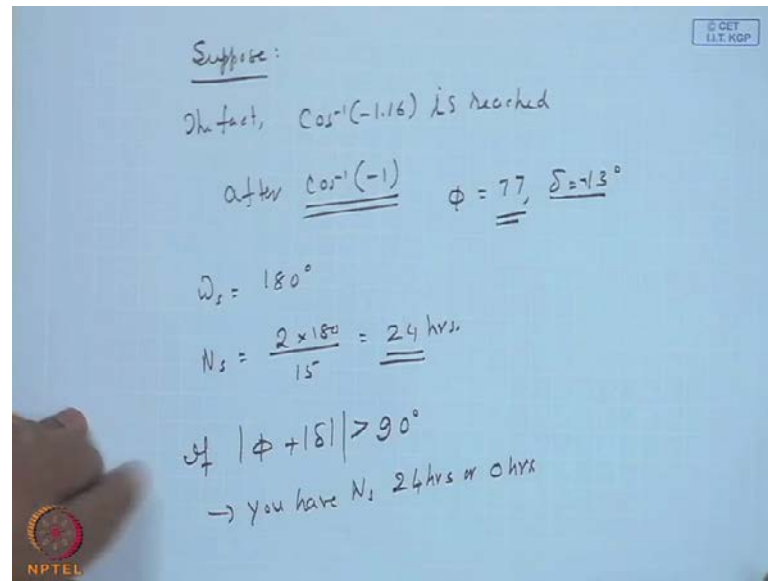 © CET
I.I.T. KGP
Suppose:
In fact, Cos⁻¹(-1.16) is reached
after cos⁻¹(-1) ϕ = 77, δ = 13°
ω_s = 180°
N_s = 2 × 180 / 15 = 24 hrs.
If |ϕ + |δ|| > 90°
→ you have N_s 24 hrs or 0 hrs
NPTEL